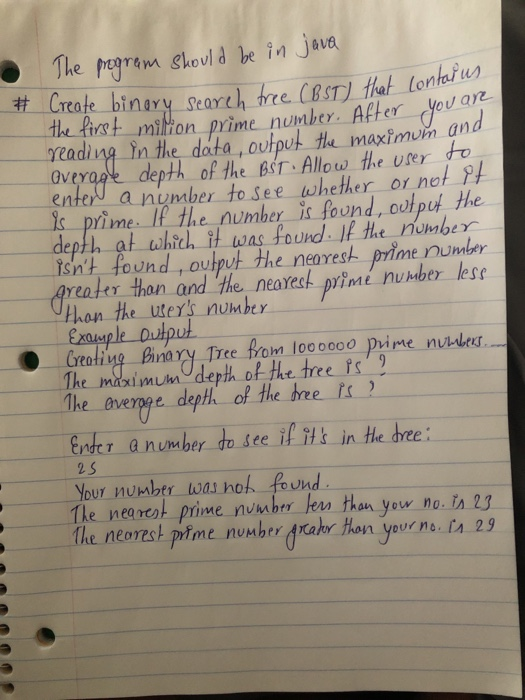 The program should be in java
# Create binary search tree (BST) that contains
the first million prime number. After you are
reading in the data, output the maximum and
average depth of the BST. Allow the user to
enter a number to see whether or not it
is prime. If the number is found, output the
depth at which it was found. If the number
isn't found, output the nearest prime number
greater than and the nearest prime number less
than the user's number
Example Output
Creating Binary Tree from 1000000 prime numbers.
The maximum depth of the tree is ?
The average depth of the tree is ?
Enter a number to see if it's in the tree:
25
Your number was not found.
The nearest prime number less than your no. is 23
The nearest prime number greater than your no. is 29